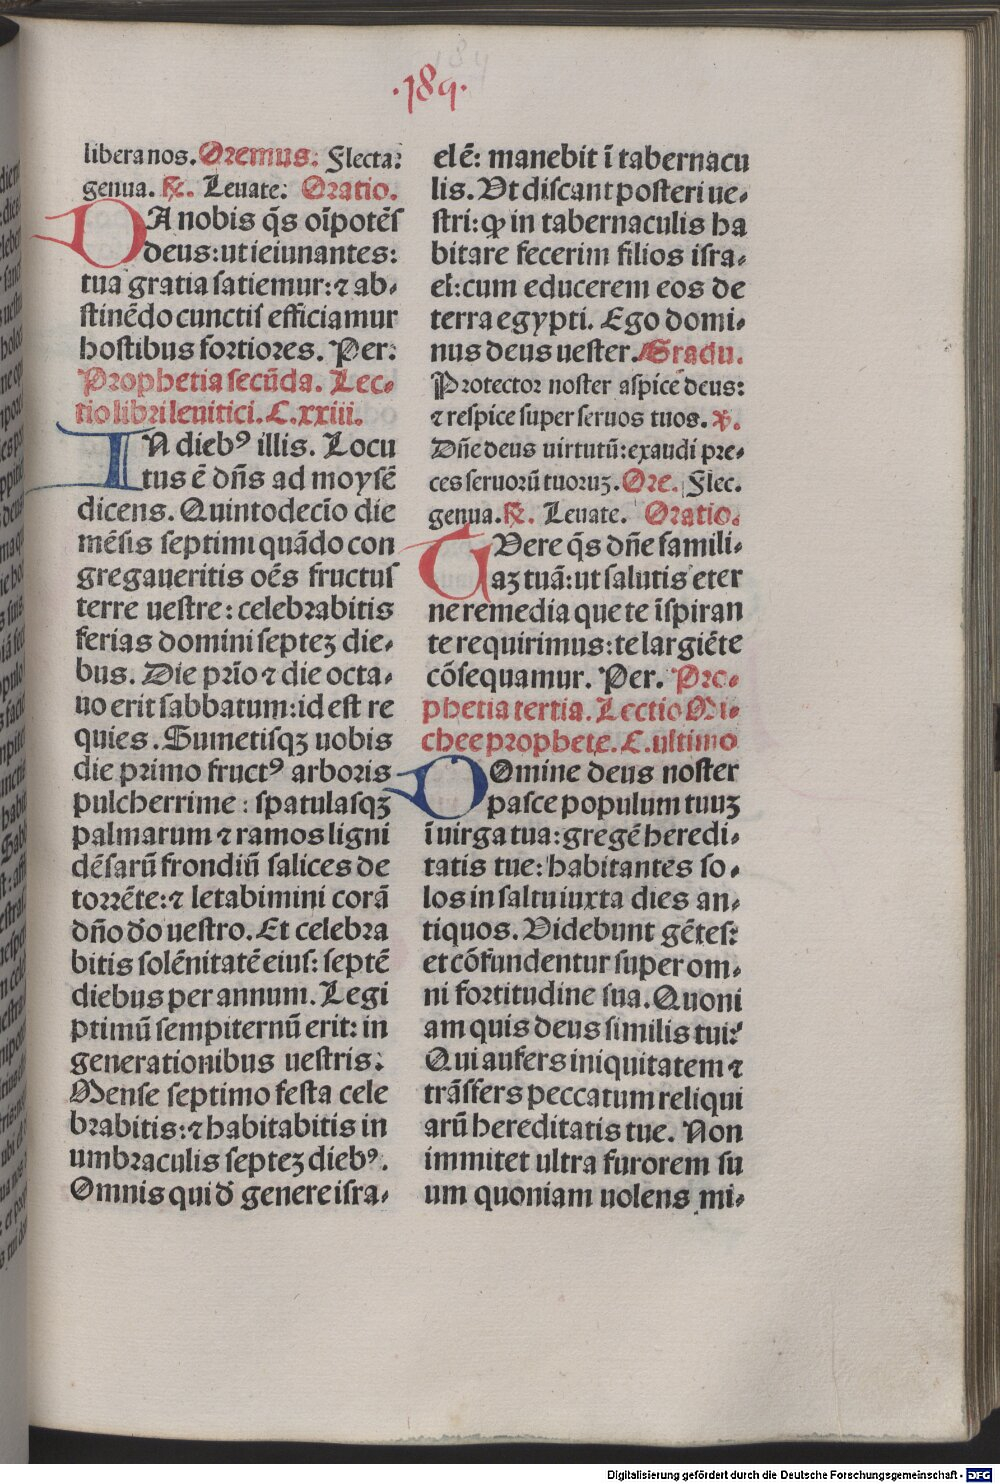 ·189·
libera nos. Oremus. Flecta⁊
genua. ℟. Leuate. Oratio.
DA nobis q̄s oīpotēs
deus: ut ieiunantes:
tua gratia satiemur: ⁊ ab⸗
stinēdo cunctis efficiamur
hostibus fortiores. Per:
Prophetia secūda. Lec⸗
tio libri leuitici. C. xxiii.
IN diebꝰ illis. Locu
tus ē dn̄s ad moysē
dicens. Quintodecīo die
mēsis septimi quādo con
gregaueritis oēs fructus
terre uestre: celebrabitis
ferias domini septeꝫ die⸗
bus. Die prīo ⁊ die octa⸗
uo erit sabbatum: id est re
quies. Sumetisqꝫ uobis
die primo fructꝰ arboris
pulcherrime: spatulasqꝫ
palmarum ⁊ ramos ligni
dēsarū frondiū salices de
torrēte: ⁊ letabimini corā
dn̄o do̅ uestro. Et celebra
bitis solēnitatē eius: septē
diebus per annum. Legi
ptimū sempiternū erit: in
generationibus uestris:
Mense septimo festa cele
brabitis: ⁊ habitabitis in
umbraculis septeꝫ diebꝰ.
Omnis qui d̄ genere isra⸗
elē: manebit ī tabernacu
lis. Ut discant posteri ue⸗
stri: ꝙ in tabernaculis ha
bitare fecerim filios isra⸗
el: cum educerem eos de
terra egypti. Ego domi⸗
nus deus uester. Gradu.
Protector noster aspice deus:
⁊ respice super seruos tuos. ℣.
Dn̄e deus uirtutū: exaudi pre⸗
ces seruorū tuoruꝫ. Ore. Flec.
genua. ℟. Leuate. Oratio.
TUere q̄s dn̄e famili⸗
aꝫ tuā: ut salutis eter
ne remedia que te īspiran
te requirimus: te largiēte
cōsequamur. Per. Pro⸗
phetia tertia. Lectio Mi⸗
chee prophete. C. ultimo
DOmine deus noster
pasce populum tuuꝫ
ī uirga tua: gregē heredi⸗
tatis tue: habitantes so⸗
los in saltu iuxta dies an⸗
tiquos. Videbunt gētes:
et cōfundentur super om⸗
ni fortitudine sua. Quoni
am quis deus similis tui?
Qui aufers iniquitatem ⁊
trāsfers peccatum reliqui
arū hereditatis tue. Non
immitet ultra furorem su
um quoniam uolens mi⸗
Digitalisierung gefördert durch die Deutsche Forschungsgemeinschaft - DFG